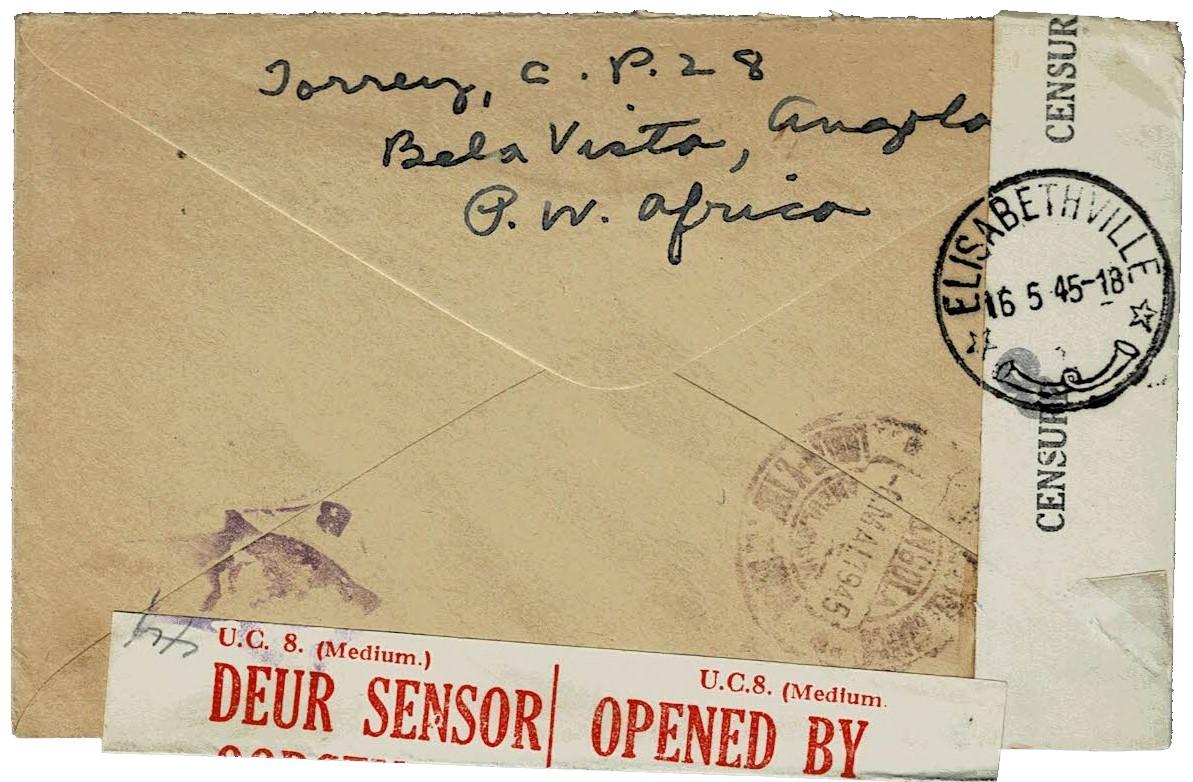 Torrey, C.P. 28
Bela Vista, Angola
P. W. Africa
CENSUR
ELISABETHVILLE
16 5 45-18
CENSUR
MAI 1945
U.C. 8. (Medium.)
DEUR SENSOR
U.C.8. (Medium
OPENED BY